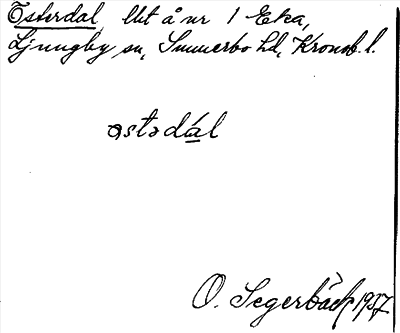 Österdal Utt å nr 1 Eka,
Ljungby sn, Sunnerbo hd, Kronob. l.
ɷstədál
O. Segerbäck 1937